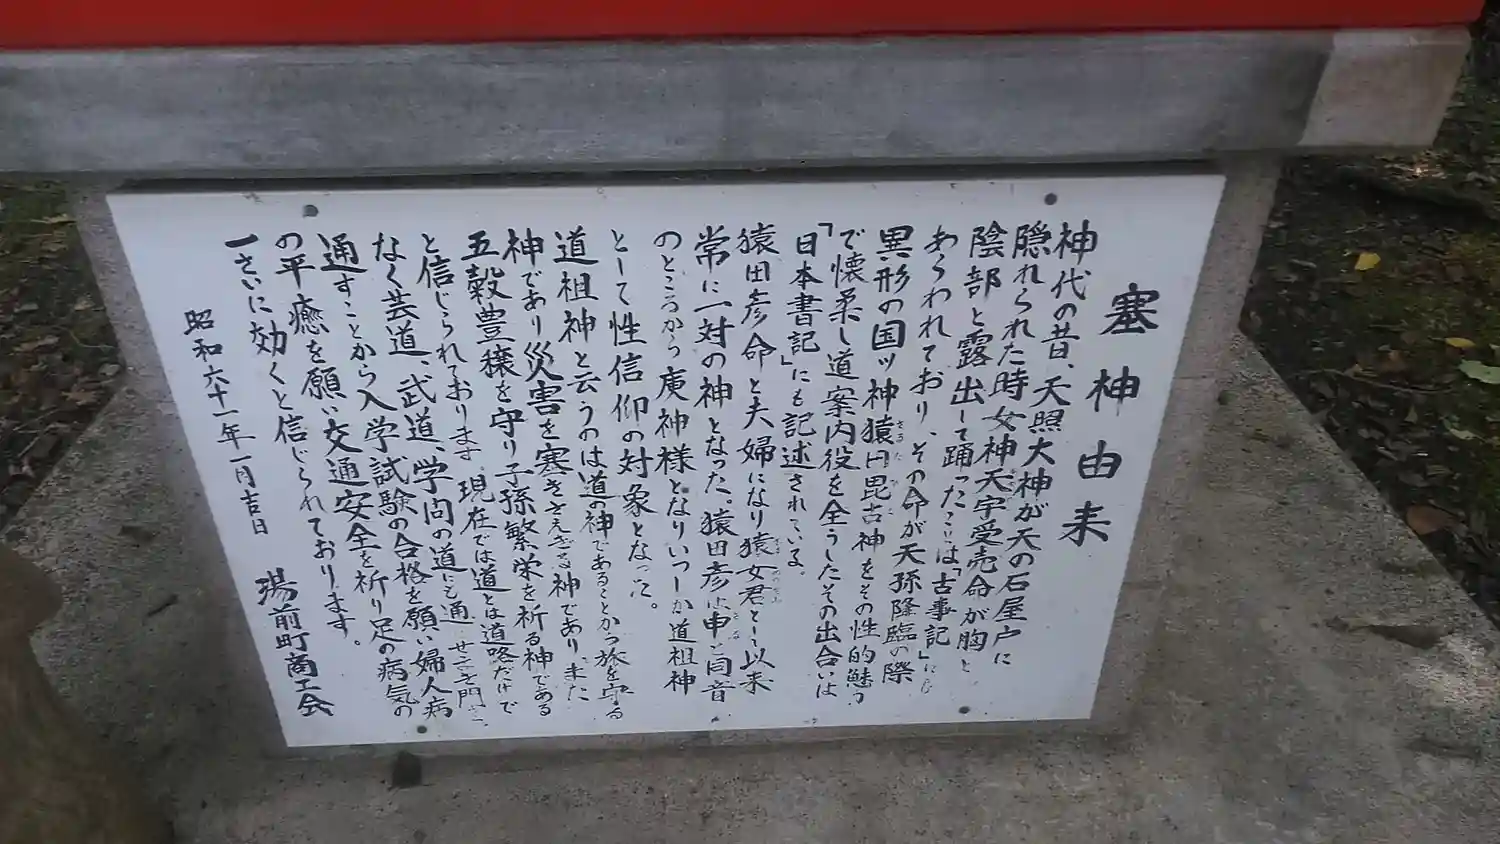 塞神由来
神代の昔、天照大神が天の石屋戸に
隠れられた時女神天宇受売命が胸と
陰部と露出して踊ったことは「古事記」にも
あらわれており、その命が天孫降臨の際
異形の国ッ神猿田毘古神をその性的魅力
で懐柔し道案内役を全うしたその出合いは
「日本書記」にも記述されている。
猿田彦命と夫婦になり猿女君として以来
常に一対の神となった。猿田彦は申と同音
のところから庚神様となりいつしか道祖神
として性信仰の対象となった。
道祖神と云うのは道の神であることから旅を守る
神であり災害を塞きさえぎる神でありまた
五穀豊穣を守り子孫繁栄を祈る神である
と信じられております。現在では道とは道路だけで
なく芸道、武道、学問の道にも通
通すことから入学試験の合格を願い婦人病
の平癒を願い交通安全を祈り足の病気の
一さいに効くと信じられております。
昭和六十一年一月吉日
湯前町商工会